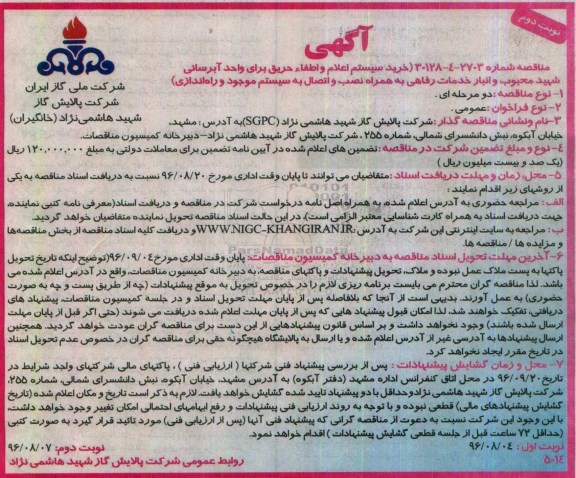 نوبت دوم
آگهی
شرکت ملی گاز ایران
شرکت پالایش گاز
شهید هاشمی‌نژاد (خانگیران)
مناقصه شماره ۲۷۰۳-۴-۳۰۱۲۸ (خرید سیستم اعلام و اطفاء حریق برای واحد آبرسانی
شهید محبوب و انبار خدمات رفاهی به همراه نصب و اتصال به سیستم موجود و راه‌اندازی)
۱- نوع مناقصه : دو مرحله ای .
۲- نوع فراخوان : عمومی.
۳- نام ونشانی مناقصه گذار : شرکت پالایش گاز شهید هاشمی نژاد (SGPC)به آدرس : مشهد،
خیابان آبکوه، نبش دانشسرای شمالی، شماره ۲۵۵ ، شرکت پالایش گاز شهید هاشمی نژاد-دبیرخانه کمیسیون مناقصات.
۴- نوع و مبلغ تضمین شرکت در مناقصه : تضمین های اعلام شده در آیین نامه تضمین برای معاملات دولتی به مبلغ ۱۲۰,۰۰۰,۰۰۰ ریال
(یک صد و بیست میلیون ریال )
۵- محل، زمان و مهلت دریافت اسناد : متقاضیان می توانند تا پایان وقت اداری مورخ ۹۶/۰۸/۲۰ نسبت به دریافت اسناد مناقصه به یکی
از روشهای زیر اقدام نمایند :
الف : مراجعه حضوری به آدرس اعلام شده، به همراه اصل نامه درخواست شرکت در مناقصه و دریافت اسناد(معرفی نامه کتبی نماینده،
جهت دریافت اسناد به همراه کارت شناسایی معتبر الزامی است)، در این حالت اسناد مناقصه تحویل نماینده متقاضیان خواهد گردید.
ب : مراجعه به سایت اینترنتی این شرکت به آدرس :WWW.NIGC-KHANGIRAN.IR و دریافت کلیه اسناد مناقصه از بخش مناقصه‌ها
و مزایده ها / مناقصه ها.
۶- آخرین مهلت تحویل اسناد مناقصه به دبیرخانه کمیسیون مناقصات: پایان وقت اداری مورخ ۹۶/۰۹/۰۴(توضیح اینکه تاریخ تحویل
پاکتها به پست ملاک عمل نبوده و ملاک، تحویل پیشنهادات و پاکتهای مناقصه، به دبیرخانه کمیسیون مناقصات، واقع در آدرس اعلام شده می
باشد. لذا مناقصه گران محترم می بایست برنامه ریزی لازم را در خصوص تحویل به موقع پیشنهادات (چه از طریق پست و چه به صورت
حضوری) به عمل آورند. بدیهی است از آنجا که بلافاصله پس از پایان مهلت تحویل اسناد و در جلسه کمیسیون مناقصات، پیشنهاد های
دریافتی، تفکیک خواهند شد، لذا امکان قبول پیشنهاد هایی که پس از پایان مهلت اعلام شده دریافت می شوند (حتی اگر قبل از پایان مهلت
ارسال شده باشند) وجود نخواهد داشت و بر اساس قانون پیشنهادهایی از این دست برای مناقصه گران عودت خواهد گردید. همچنین
ارسال پیشنهادها به آدرسی غیر از آدرس اعلام شده و یا ارسال به پالایشگاه هیچگونه حقی برای مناقصه گران در خصوص عدم تحویل اسناد
در تاریخ مقرر ایجاد نخواهد کرد.
۷- محل و زمان گشایش پیشنهادات : پس از بررسی پیشنهاد فنی شرکتها ( ارزیابی فنی ) ، پاکتهای مالی شرکتهای واجد شرایط در
تاریخ ۹۶/۰۹/۲۰ در محل اتاق کنفرانس اداره مشهد (دفتر آبکوه) به آدرس مشهد، خیابان آبکوه، نبش دانشسرای شمالی، شماره ۲۵۵،
شرکت پالایش گاز شهید هاشمی نژادوحداقل با دو پیشنهاد تایید شده گشایش خواهد یافت. لازم به ذکر است تاریخ و مکان اعلام شده (تاریخ
گشایش پیشنهادهای مالی) قطعی نبوده و با توجه به روند ارزیابی فنی پیشنهادات و رفع ابهامهای احتمالی امکان تغییر وجود خواهد داشت.
با این وجود این شرکت نسبت به دعوت از مناقصه گرانی که پیشنهاد فنی آنها (پس از ارزیابی فنی) مورد تائید قرار گیرد به صورت کتبی
(حداقل ۷۲ ساعت قبل از جلسه قطعی گشایش پیشنهادات ) اقدام خواهد نمود.
نوبت اول : ۹۶/۰۸/۰۴
نوبت دوم: ۹۶/۰۸/۰۷
۵۰۱۴
روابط عمومی شرکت پالایش گاز شهید هاشمی نژاد